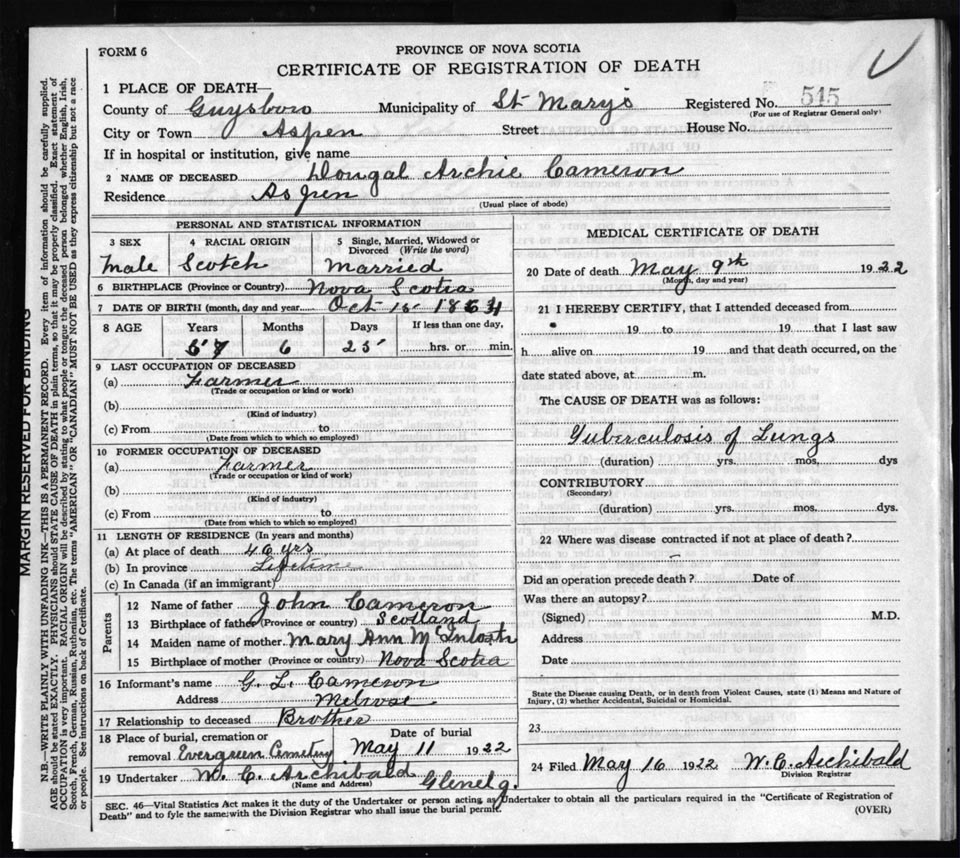 FORM 6
PROVINCE OF NOVA SCOTIA
CERTIFICATE OF REGISTRATION OF DEATH
1 PLACE OF DEATH—
County of Guysboro Municipality of St Mary's Registered No. 515
(For use of Registrar General only)
City or Town Aspen Street House No.
If in hospital or institution, give name
2 NAME OF DECEASED Dougal Archie Cameron
Residence Aspen
(Usual place of abode)
PERSONAL AND STATISTICAL INFORMATION
3 SEX 4 RACIAL ORIGIN 5 Single, Married, Widowed or Divorced (Write the word)
Male Scotch Married
6 BIRTHPLACE (Province or Country) Nova Scotia
7 DATE OF BIRTH (month, day and year) Oct 15 1864
8 AGE Years Months Days If less than one day,
57 6 25 hrs. or min.
9 LAST OCCUPATION OF DECEASED
(a) Farmer
(Trade or occupation or kind or work)
(b)
(Kind of industry)
(c) From to
(Date from which to which so employed)
10 FORMER OCCUPATION OF DECEASED
(a) Farmer
(Trade or occupation or kind of work)
(b)
(Kind of industry)
(c) From to
(Date from which to which so employed)
11 LENGTH OF RESIDENCE (In years and months)
(a) At place of death 40 yrs
(b) In province Lifetime
(c) In Canada (if an immigrant)
Parents
12 Name of father John Cameron
13 Birthplace of father (Province or country) Scotland
14 Maiden name of mother Mary Ann McIntosh
15 Birthplace of mother (Province or country) Nova Scotia
16 Informant's name G. L. Cameron
Address Melrose
17 Relationship to deceased Brother
18 Place of burial, cremation or Date of burial
removal Evergreen Cemetry May 11 1922
19 Undertaker W. C. Archibald Glenelg.
(Name and Address)
MEDICAL CERTIFICATE OF DEATH
20 Date of death May 9th 1922
(Month, day and year)
21 I HEREBY CERTIFY, that I attended deceased from
19 to 19 that I last saw
h alive on 19 and that death occurred, on the
date stated above, at m.
The CAUSE OF DEATH was as follows:
Tuberculosis of Lungs
(duration) yrs. mos. dys
CONTRIBUTORY
(Secondary)
(duration) yrs. mos. dys.
22 Where was disease contracted if not at place of death?
Did an operation precede death? Date of
Was there an autopsy?
(Signed) M.D.
Address
Date
State the Disease causing Death, or in death from Violent Causes, state (1) Means and Nature of
Injury, (2) whether Accidental, Suicidal or Homicidal.
23
24 Filed May 16 1922 W. C. Archibald
Division Registrar
SEC. 46—Vital Statistics Act makes it the duty of the Undertaker or person acting as Undertaker to obtain all the particulars required in the "Certificate of Registration of
Death" and to fyle the same with the Division Registrar who shall issue the burial permit.
(OVER)
MARGIN RESERVED FOR BINDING
N.B.—WRITE PLAINLY WITH UNFADING INK—THIS IS A PERMANENT RECORD. Every item of information should be carefully supplied.
AGE should be stated EXACTLY. PHYSICIANS should STATE CAUSE OF DEATH in plain terms, so that it may be properly classified. Exact statement of
OCCUPATION is very important. RACIAL ORIGIN will be described by stating to what people or tongue the deceased person belonged whether English, Irish,
Scotch, French, German, Russian, Ruthenian, etc. The terms "AMERICAN" or "CANADIAN" MUST NOT BE USED as they express citizenship but not a race
or people. See instructions on back of Certificate.